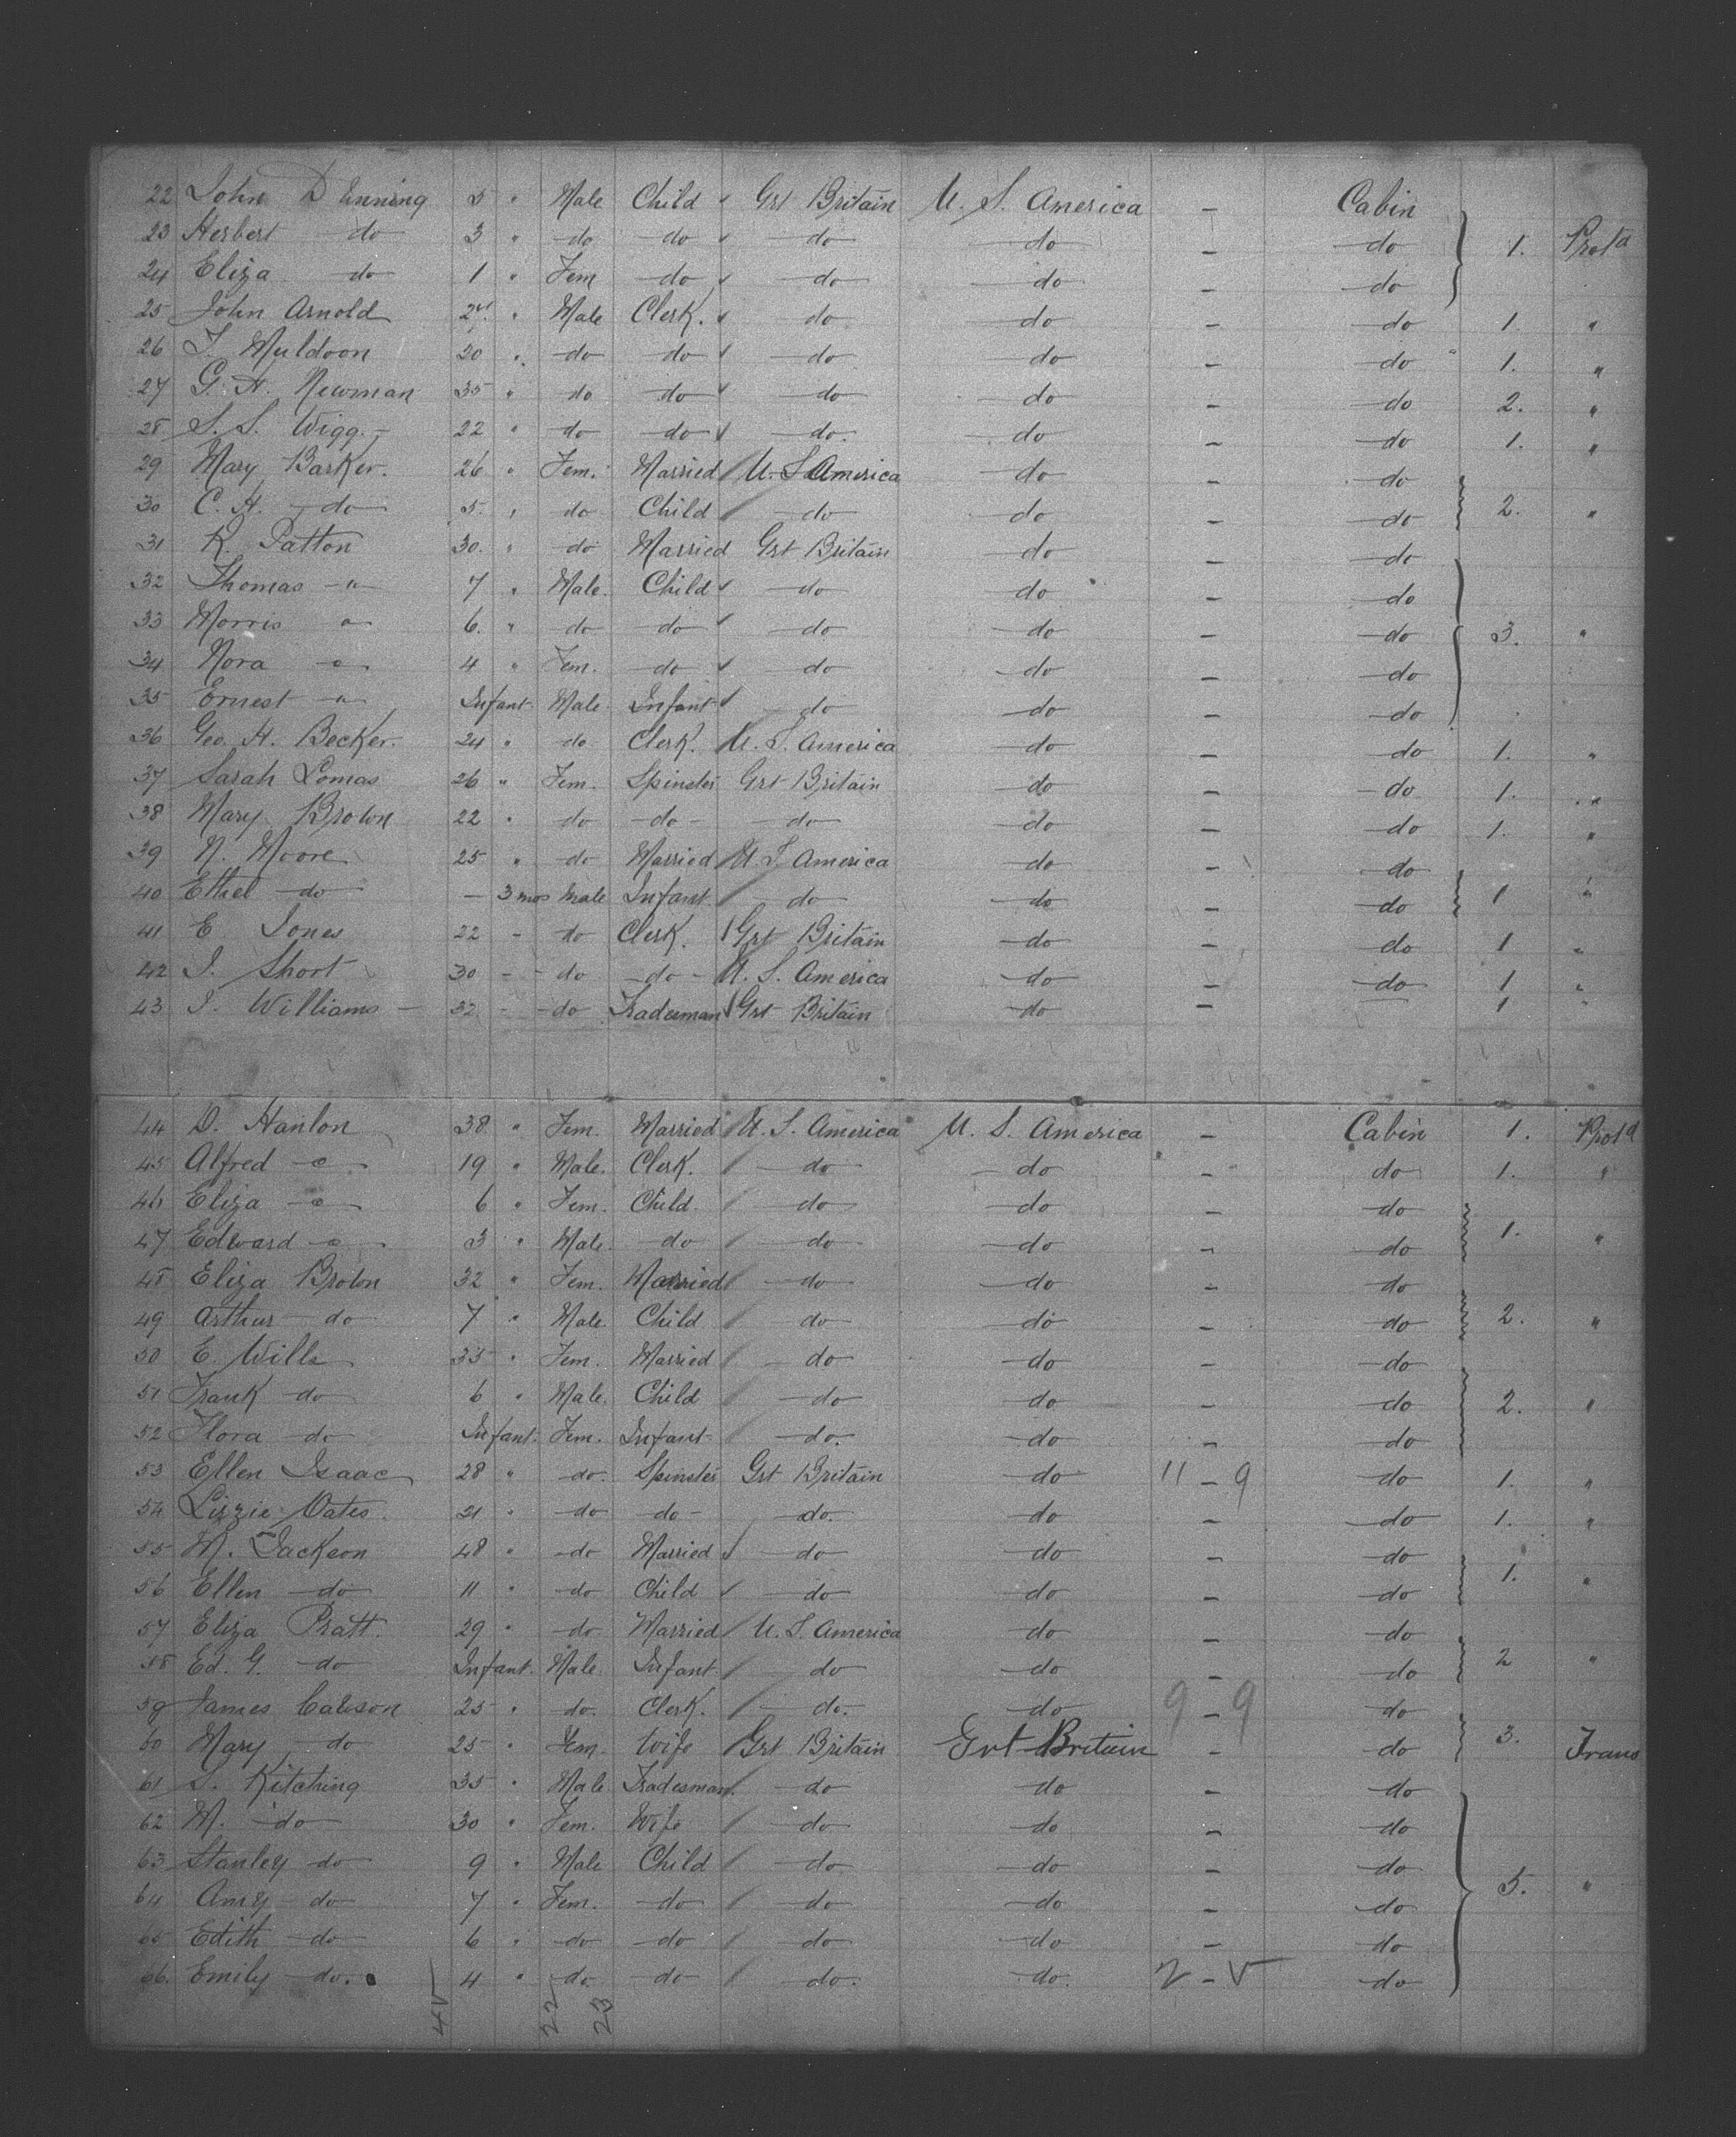 22 John Denning 5 " Male Child Grt Britain U. S. America - Cabin
23 Herbert do 3 " do do do do - do 1. Prot'd
24 Eliza do 1 " Fem do do do - do
25 John Arnold 24 " Male Clerk. do do - do 1. "
26 T. Muldoon 20 " do do do do - do 1. "
27 G. H. Newman 35 " do do do do - do 2. "
28 S. S. Wigg. 22 " do do do. do - do 1. "
29 Mary Barker. 26 " Fem. Married U. S America do - do
30 C. H. do 5. " do Child do do - do 2. "
31 K. Patton 30. " do Married Grt Britain do - do
32 Thomas " 7 " Male. Child do do - do
33 Morris " 6. " do do do do - do 3. "
34 Nora " 4 " Fem. do do do - do
35 Ernest " Infant. Male Infant do do - do
36 Geo. H. Becker. 24 " do Clerk. U. S. America do - do 1. "
37 Sarah Lomas 26 " Fem. Spinster Grt Britain do - do 1. "
38 Mary Brown 22 " do do - do do - do 1. "
39 N. Moore 25 " do Married U. S. America do - do
40 Ethel do - 3 mos Male Infant do do - do 1 "
41 E. Jones 22 - do Clerk. Grt Britain do - do 1 "
42 J. Short 30 - - do do - U. S. America do - do 1 "
43 J. Williams - 32 - - do Tradesman Grt Britain do - 1 "
44 D. Hanlon 38 " Fem. Married U. S. America U. S. America - Cabin 1. Prot'd
45 Alfred " 19 " Male. Clerk. do do - do 1. "
46 Eliza " 6 " Fem. Child do do - do
47 Edward " 3 " Male. do do do - do 1. "
48 Eliza Brown 32 " Fem. Married do do - do
49 Arthur do 7 " Male Child do do - do 2. "
50 E. Wills 35 " Fem. Married do do - do
51 Frank do 6 " Male. Child do do - do 2. "
52 Flora do Infant. Fem. Infant do. do - do
53 Ellen Isaac 28 " do. Spinster Grt Britain do 11 - 9 do 1. "
54 Lizzie Oates. 21 " do do - do. do - do 1. "
55 M. Jackson 48 " do Married do do - do
56 Ellen do 11 " do Child do do - do 1. "
57 Eliza Pratt. 29 " do. Married U. S. America do - do
58 Ed. G. do Infant. Male. Infant. do do - do 2 "
59 James 25 " do. Clerk. do. do 9 - 9 do
60 Mary do 25 " Fem. Wife Grt Britain Grt Britain - do 3. Trans
61 S. Kitching 35 " Male Tradesman. do do - do
62 M. do 30 " Fem. Wife do do - do
63 Stanley do 9 " Male Child do do - do
64 Amy do 7 " Fem. do do do - do 5. "
65 Edith do 6 " do do do do - do
66. Emily do. 4 " do do do. do. 2 - V do
22 23